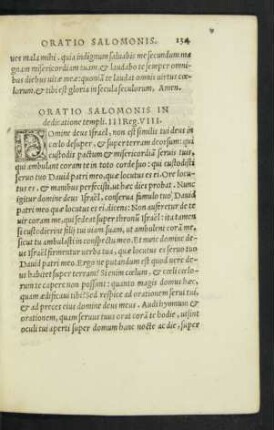 ORATIO SALOMONIS. 134
ues mala mihi, quia indignum saluabis me secundum ma
gnam misericordiam tuam, & laudabo te semper omni-
bus diebus uitæ meæ: quoniã te laudat omnis uirtus cœ-
lorum, & tibi est gloria in secula seculorum. Amen.
ORATIO SALOMONIS IN
dedicatione templi. III Reg. VIII.
DOmine deus Israël, non est similis tui deus in
cœlo desuper, & super terram deorsum: qui
custodis pactum & misericordiã seruis tuis,
qui ambulant coram te in toto corde suo: qui custodisti
seruo tuo Dauid patri meo, quæ locutus es ei. Ore locu-
tus es, & manibus perfecisti, ut hæc dies probat. Nunc
igitur domine deus Israël, conserua famulo tuo Dauid
patri meo quæ locutus es ei, dicens: Non auferetur de te
uir coram me, qui sedeat super thronũ Israël: ita tamen
si custodierint filij tui uiam suam, ut ambulent corã me,
sicut tu ambulasti in conspectu meo. Et nunc domine de-
us Israël firmentur uerba tua, quæ locutus es seruo tuo
Dauid patri meo. Ergo ne putandum est quòd uere de-
us habitet super terram? Si enim cœlum, & cœli cœlo-
rum te capere non possunt: quanto magis domus hæc,
quam ædificaui tibi? Sed respice ad orationem serui tui,
& ad preces eius domine deus meus. Audi hymnum &
orationem, quam seruus tuus orat corã te hodie, ut sint
oculi tui aperti super domum hanc nocte ac die, super